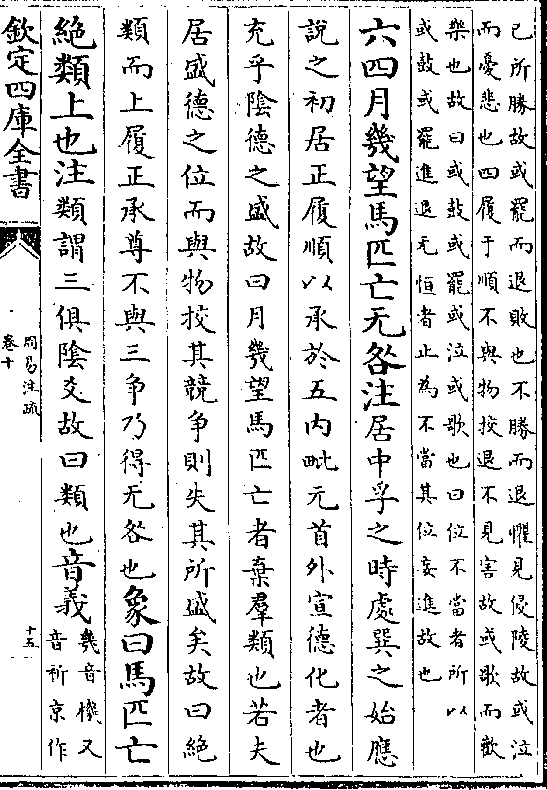 已所勝故或罷而退敗也不勝而退懼見侵陵故或泣
而憂悲也四履于順不與物挍退不見害故或歌而歡
樂也故曰或鼓或罷或泣或歌也曰位不當者所以
或鼓或罷進退无恒者止為不當其位妄進故也
六四月幾望馬匹亡无咎注居中孚之時處巽之始應
說之初居正履順以承於五内毗元首外宣德化者也
充乎陰德之盛故曰月幾望馬匹亡者棄羣類也若夫
居盛德之位而與物挍其競爭則失其所盛矣故曰絶
類而上履正承尊不與三爭乃得无咎也象曰馬匹亡
絶類上也注類謂三俱陰爻故曰類也音義
幾音機又
音祈京作
欽定四庫全書
周易注疏
卷十
十五